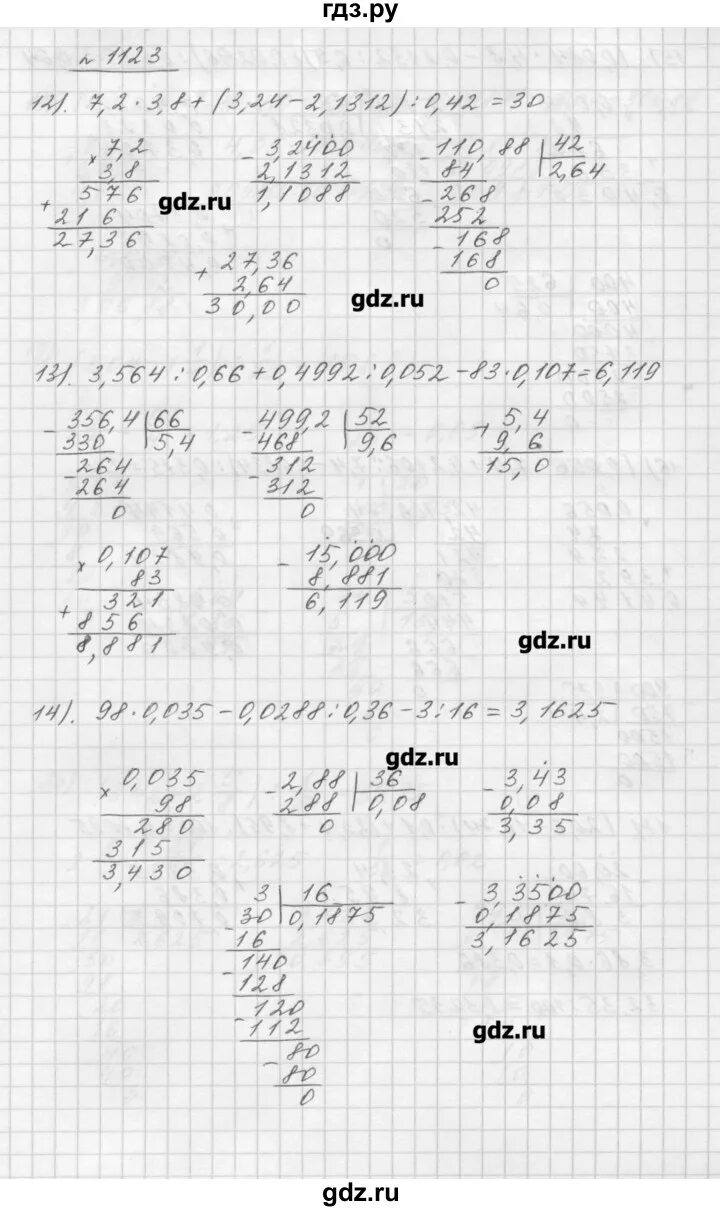 гдз.ру
№ 1123
12). 7,2 · 3,8 + (3,24 - 2,1312) : 0,42 = 30
× 7,2
3,8
+ 576
216
27,36
- 3,2400
2,1312
1,1088
gdz.ru
- 110,88 | 42
84 | 2,64
- 268
252
- 168
168
0
+ 27,36
2,64
30,00
gdz.ru
13). 3,564 : 0,66 + 0,4992 : 0,052 - 83 · 0,107 = 6,119
- 356,4 | 66
330 | 5,4
- 264
264
0
- 499,2 | 52
468 | 9,6
- 312
312
0
+ 5,4
9,6
15,0
× 0,107
83
+ 321
856
8,881
- 15,000
8,881
6,119
gdz.ru
14). 98 · 0,035 - 0,0288 : 0,36 - 3 : 16 = 3,1625
gdz.ru
× 0,035
98
280
315
3,430
- 2,88 | 36
288 | 0,08
0
- 3,43
0,08
3,35
3 | 16
- 30 | 0,1875
16
- 140
128
- 120
112
- 80
80
0
- 3,3500
0,1875
3,1625
gdz.ru
gdz.ru